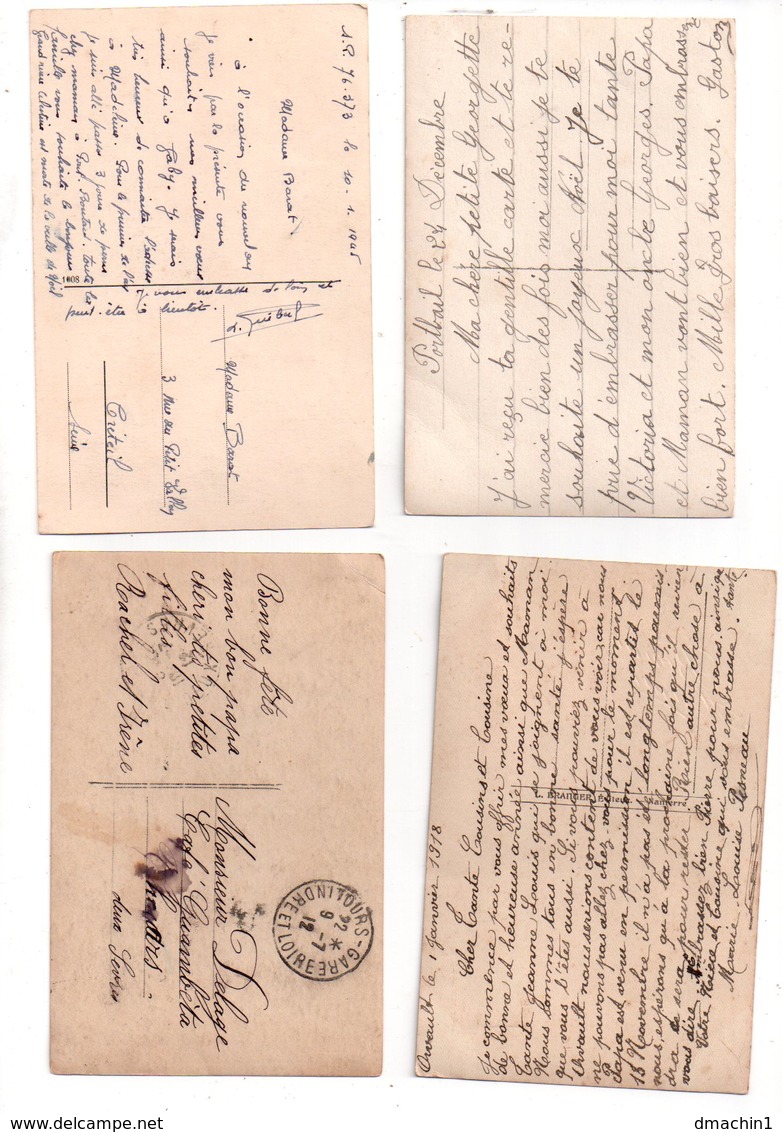 S.P. 76.373 le 10.1.1945
Madame Barat
à l'occasion du nouvel an
je viens par la présente vous
souhaiter mes meilleurs vœux
ainsi qu'à Gaby. J'
très heureux de connaître l'adresse
à Madeleine. Pour le premier de l'an
je suis allé passer 3 jours de
chez maman à Toute la
famille vous souhaite la
Grand mère est morte de la veille de Noël
1608
je vous embrasse de loin et
peut-être à bientôt.
Madame Barat
3 Rue du Petit
Créteil
Seine
Portbail le 24 Décembre
Ma chère petite Georgette
J'ai reçu ta gentille carte et te re-
mercie bien des fois moi aussi je te
souhaite un joyeux Noël. Je te
prie d'embrasser pour moi tante
Victoria et mon oncle Georges. Papa
et Maman vont bien et vous embrasse
bien fort. Mille Gros baisers. Gaston
Bonne fête
mon bon papa
cheri tes petites
filles
Rachel et Irène
Monsieur Delage
Café Guambeta
deux Sevres
TOURS-GARE
22 * 9-7 12
INDRE ET LOIRE
Orvault le 1 Janvier 1918
Cher Tante Cousins et Cousine
Je commence par vous offrir mes vœux et souhaits
de bonne et heureuse année ainsi que Maman
Tante Jeanne Louis qui se joignent à moi
Nous sommes tous en bonne santé j'espère
que vous l'êtes aussi. Si vous pouviez venir à
Orvault nous serions content de vous voir, car nous
ne pouvons pas aller chez vous pour le moment
Papa est venu en permission il est repartit le
18 Novembre il n'a pas été longtemps parmis
nous, esperons qu'à la prochaine fois qu'il revien
dra ce sera pour rester Rien autre chose à
vous dire Embrassez bien Pierre pour nous, ainsi que
Votre Nièce et Cousine qui vous embrasse. tante
Marie Louise Pesneau
BRANGER Editeur, Nanterre
dmachin1